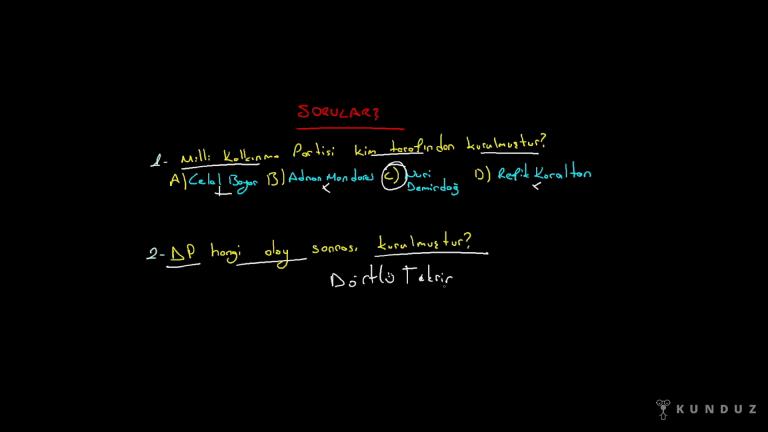 SORULAR:
1- Milli Kalkınma Partisi kim tarafından kurulmuştur?
A) Celal Bayar B) Adnan Menderes C) Nuri Demirdağ D) Refik Koraltan
2- DP hangi olay sonrası kurulmuştur?
Dörtlü Takrir
KUNDUZ